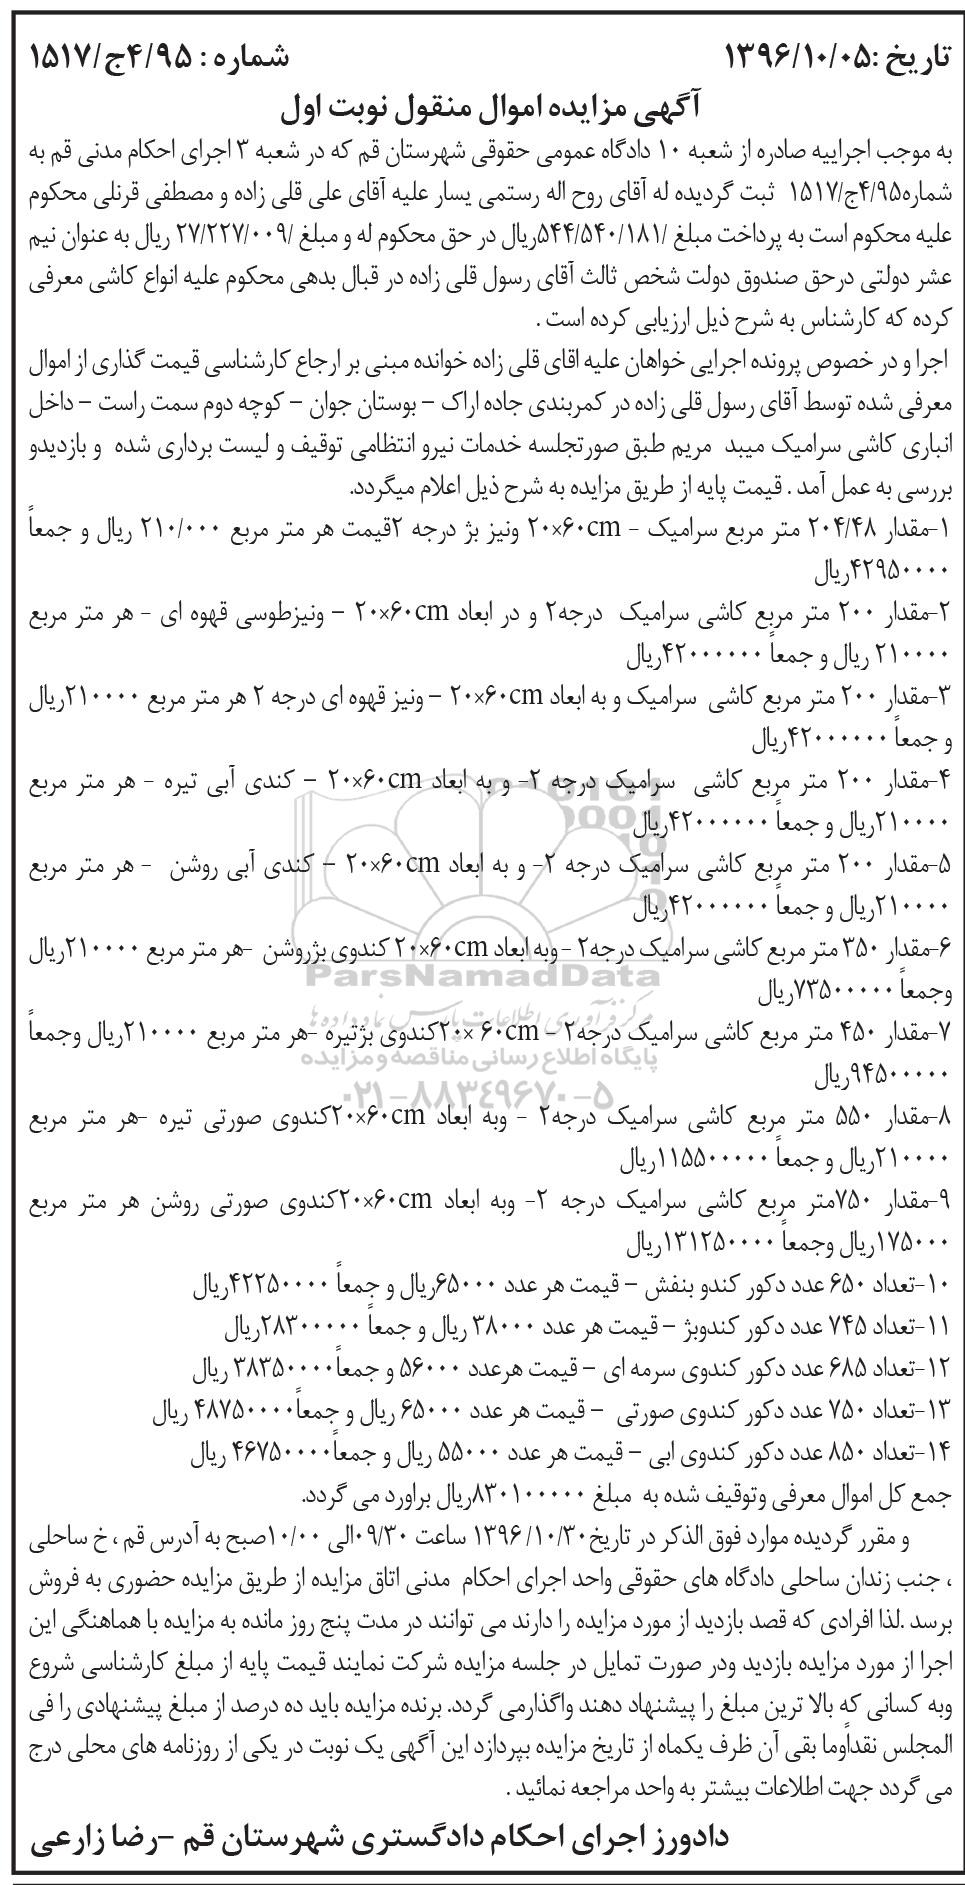 تاریخ :۱۳۹۶/۱۰/۰۵
شماره : ۴/۹۵ج/۱۵۱۷
آگهی مزایده اموال منقول نوبت اول
به موجب اجراییه صادره از شعبه ۱۰ دادگاه عمومی حقوقی شهرستان قم که در شعبه ۳ اجرای احکام مدنی قم به
شماره۴/۹۵ج/۱۵۱۷ ثبت گردیده له آقای روح اله رستمی یسار علیه آقای علی قلی زاده و مصطفی قرنلی محکوم
علیه محکوم است به پرداخت مبلغ /۵۴۴/۵۴۰/۱۸۱ریال در حق محکوم له و مبلغ /۲۷/۲۲۷/۰۰۹ ریال به عنوان نیم
عشر دولتی درحق صندوق دولت شخص ثالث آقای رسول قلی زاده در قبال بدهی محکوم علیه انواع کاشی معرفی
کرده که کارشناس به شرح ذیل ارزیابی کرده است .
اجرا و در خصوص پرونده اجرایی خواهان علیه اقای قلی زاده خوانده مبنی بر ارجاع کارشناسی قیمت گذاری از اموال
معرفی شده توسط آقای رسول قلی زاده در کمربندی جاده اراک – بوستان جوان – کوچه دوم سمت راست – داخل
انباری کاشی سرامیک میبد مریم طبق صورتجلسه خدمات نیرو انتظامی توقیف و لیست برداری شده و بازدیدو
بررسی به عمل آمد . قیمت پایه از طریق مزایده به شرح ذیل اعلام میگردد.
۱-مقدار ۲۰۴/۴۸ متر مربع سرامیک - ۲۰×۶۰cm ونیز بژ درجه ۲قیمت هر متر مربع ۲۱۰/۰۰۰ ریال و جمعاً
۴۲۹۵۰۰۰۰ریال
۲-مقدار ۲۰۰ متر مربع کاشی سرامیک درجه۲ و در ابعاد ۲۰×۶۰cm – ونیزطوسی قهوه ای - هر متر مربع
۲۱۰۰۰۰ ریال و جمعاً ۴۲۰۰۰۰۰۰ریال
۳-مقدار ۲۰۰ متر مربع کاشی سرامیک و به ابعاد ۲۰×۶۰cm – ونیز قهوه ای درجه ۲ هر متر مربع ۲۱۰۰۰۰ریال
و جمعاً ۴۲۰۰۰۰۰۰ریال
۴-مقدار ۲۰۰ متر مربع کاشی سرامیک درجه ۲- و به ابعاد ۲۰×۶۰cm – کندی آبی تیره - هر متر مربع
۲۱۰۰۰۰ریال و جمعاً ۴۲۰۰۰۰۰۰ریال
۵-مقدار ۲۰۰ متر مربع کاشی سرامیک درجه ۲- و به ابعاد ۲۰×۶۰cm – کندی آبی روشن - هر متر مربع
۲۱۰۰۰۰ریال و جمعاً ۴۲۰۰۰۰۰۰ریال
۶-مقدار ۳۵۰ متر مربع کاشی سرامیک درجه۲ - وبه ابعاد ۲۰×۶۰cm کندوی بژروشن -هر متر مربع ۲۱۰۰۰۰ریال
وجمعاً ۷۳۵۰۰۰۰۰ریال
ParsNamadData
مرکز فرآوری اطلاعات پارس نماد داده ها
۷-مقدار ۴۵۰ متر مربع کاشی سرامیک درجه۲ - ۲۰× ۶۰cmکندوی بژتیره -هر متر مربع ۲۱۰۰۰۰ریال وجمعاً
پایگاه اطلاع رسانی مناقصه و مزایده
۹۴۵۰۰۰۰۰ریال
۰۲۱-۸۸۳۴۹۶۷۰-۵
۸-مقدار ۵۵۰ متر مربع کاشی سرامیک درجه۲ - وبه ابعاد ۲۰×۶۰cmکندوی صورتی تیره -هر متر مربع
۲۱۰۰۰۰ریال و جمعاً ۱۱۵۵۰۰۰۰۰ریال
۹-مقدار ۷۵۰متر مربع کاشی سرامیک درجه ۲- وبه ابعاد ۲۰×۶۰cmکندوی صورتی روشن هر متر مربع
۱۷۵۰۰۰ریال وجمعاً ۱۳۱۲۵۰۰۰۰ریال
۱۰-تعداد ۶۵۰ عدد دکور کندو بنفش – قیمت هر عدد ۶۵۰۰۰ریال و جمعاً ۴۲۲۵۰۰۰۰ریال
۱۱-تعداد ۷۴۵ عدد دکور کندوبژ – قیمت هر عدد ۳۸۰۰۰ ریال و جمعاً ۲۸۳۰۰۰۰۰ریال
۱۲-تعداد ۶۸۵ عدد دکور کندوی سرمه ای – قیمت هرعدد ۵۶۰۰۰ و جمعاً۳۸۳۵۰۰۰۰ ریال
۱۳-تعداد ۷۵۰ عدد دکور کندوی صورتی – قیمت هر عدد ۶۵۰۰۰ ریال و جمعاً۴۸۷۵۰۰۰۰ ریال
۱۴-تعداد ۸۵۰ عدد دکور کندوی ابی – قیمت هر عدد ۵۵۰۰۰ ریال و جمعاً۴۶۷۵۰۰۰۰ ریال
جمع کل اموال معرفی وتوقیف شده به مبلغ ۸۳۰۱۰۰۰۰۰ریال براورد می گردد.
و مقرر گردیده موارد فوق الذکر در تاریخ۱۳۹۶/۱۰/۳۰ ساعت ۰۹/۳۰الی ۱۰/۰۰صبح به آدرس قم ، خ ساحلی
، جنب زندان ساحلی دادگاه های حقوقی واحد اجرای احکام مدنی اتاق مزایده از طریق مزایده حضوری به فروش
برسد .لذا افرادی که قصد بازدید از مورد مزایده را دارند می توانند در مدت پنج روز مانده به مزایده با هماهنگی این
اجرا از مورد مزایده بازدید ودر صورت تمایل در جلسه مزایده شرکت نمایند قیمت پایه از مبلغ کارشناسی شروع
وبه کسانی که بالا ترین مبلغ را پیشنهاد دهند واگذارمی گردد. برنده مزایده باید ده درصد از مبلغ پیشنهادی را فی
المجلس نقداًوما بقی آن ظرف یکماه از تاریخ مزایده بپردازد این آگهی یک نوبت در یکی از روزنامه های محلی درج
می گردد جهت اطلاعات بیشتر به واحد مراجعه نمائید .
دادورز اجرای احکام دادگستری شهرستان قم –رضا زارعی